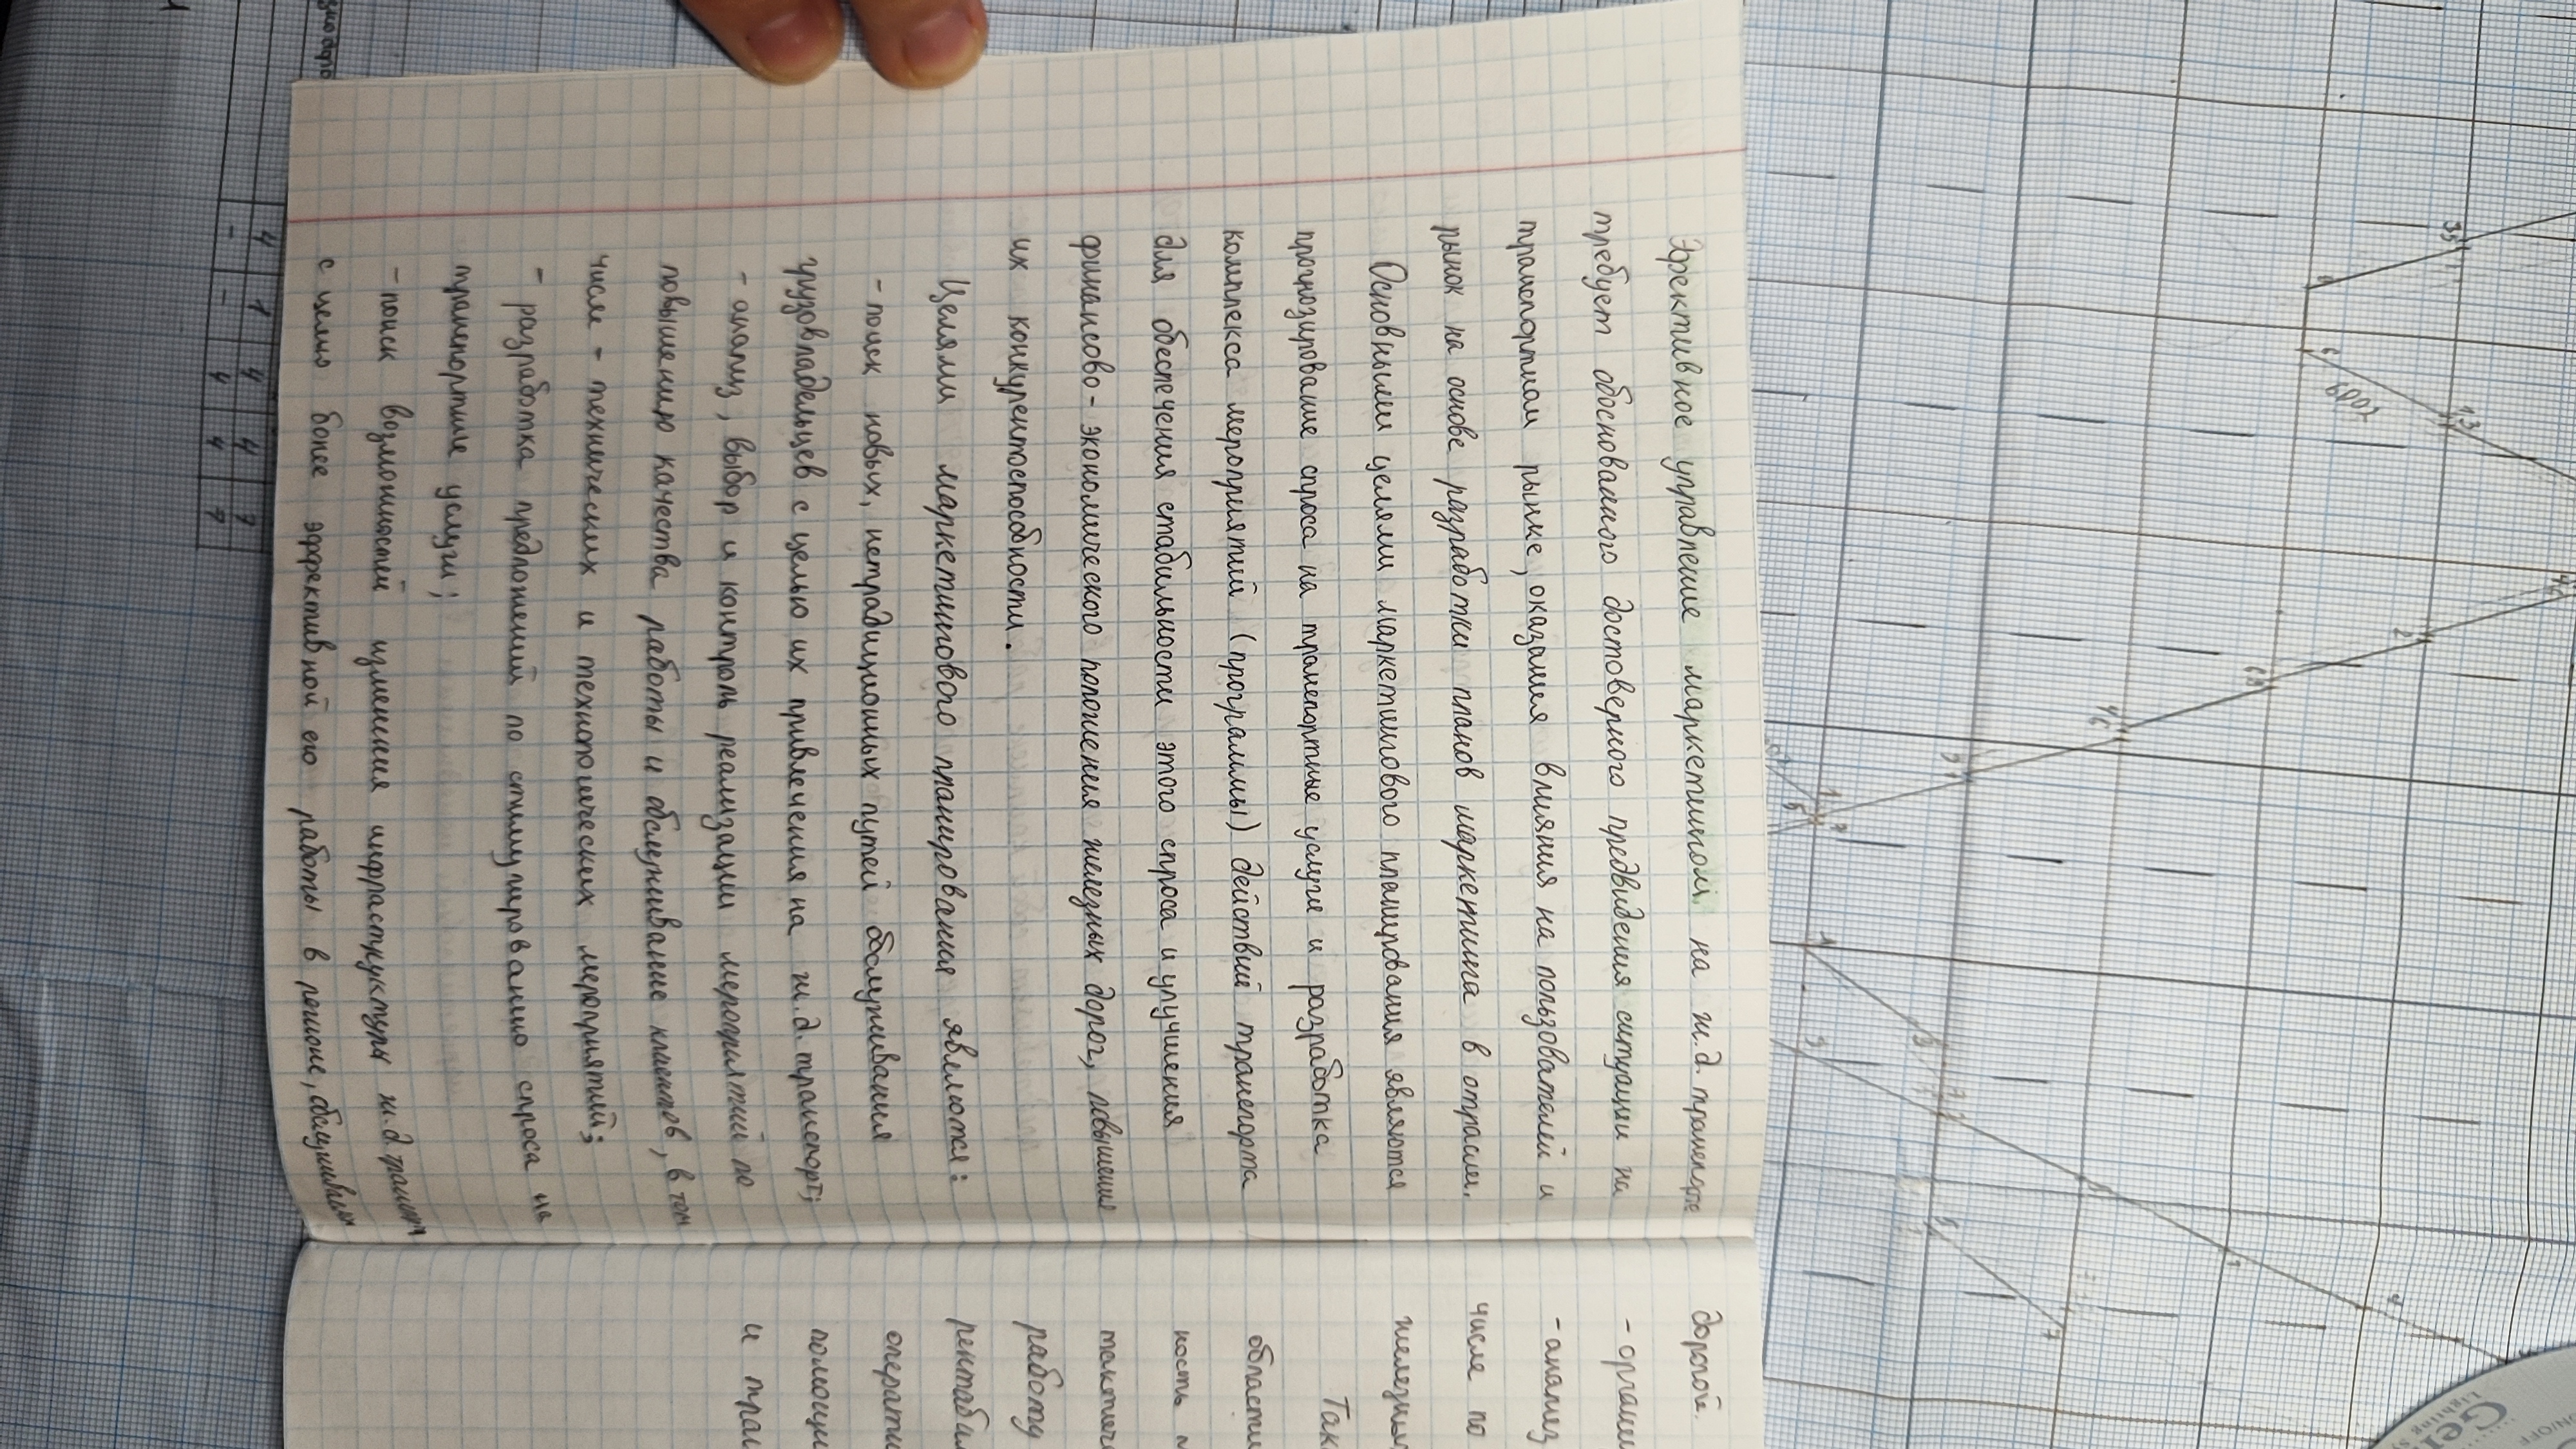 Эфективное управление маркетингом на ж.д. транспорте
требует обоснованного достоверного предвидения ситуации на
транспортном рынке, оказания влияния на пользователей и
рынок на основе разработки планов маркетинга в отрасли.
Основными целями маркетингового планирования являются
прогнозирование спроса на транспортные услуги и разработка
комплекса мероприятий (программы) действий транспорта
для обеспечения стабильности этого спроса и улучшения
финансово-экономического положения железных дорог, повышение
их конкурентоспособности.
Целями маркетингового планирования являются:
- поиск новых, нетрадиционных путей обслуживания
грузовладельцев с целью их привлечения на ж.д. транспорт;
- анализ, выбор и контроль реализации мероприятий по
повышению качества работы и обслуживание клиентов, в том
числе - технических и технологических мероприятий;
- разработка предложений по стимулированию спроса на
транспортные услуги;
- поиск возможностей изменения инфраструктуры ж.д.
с целью более эффективной его работы в регионе,
дорогой.
- органи
- анализ
числе по
железных
Так
области
ность
тактич
работу
рентабил
операти
помощи
и тра
6001